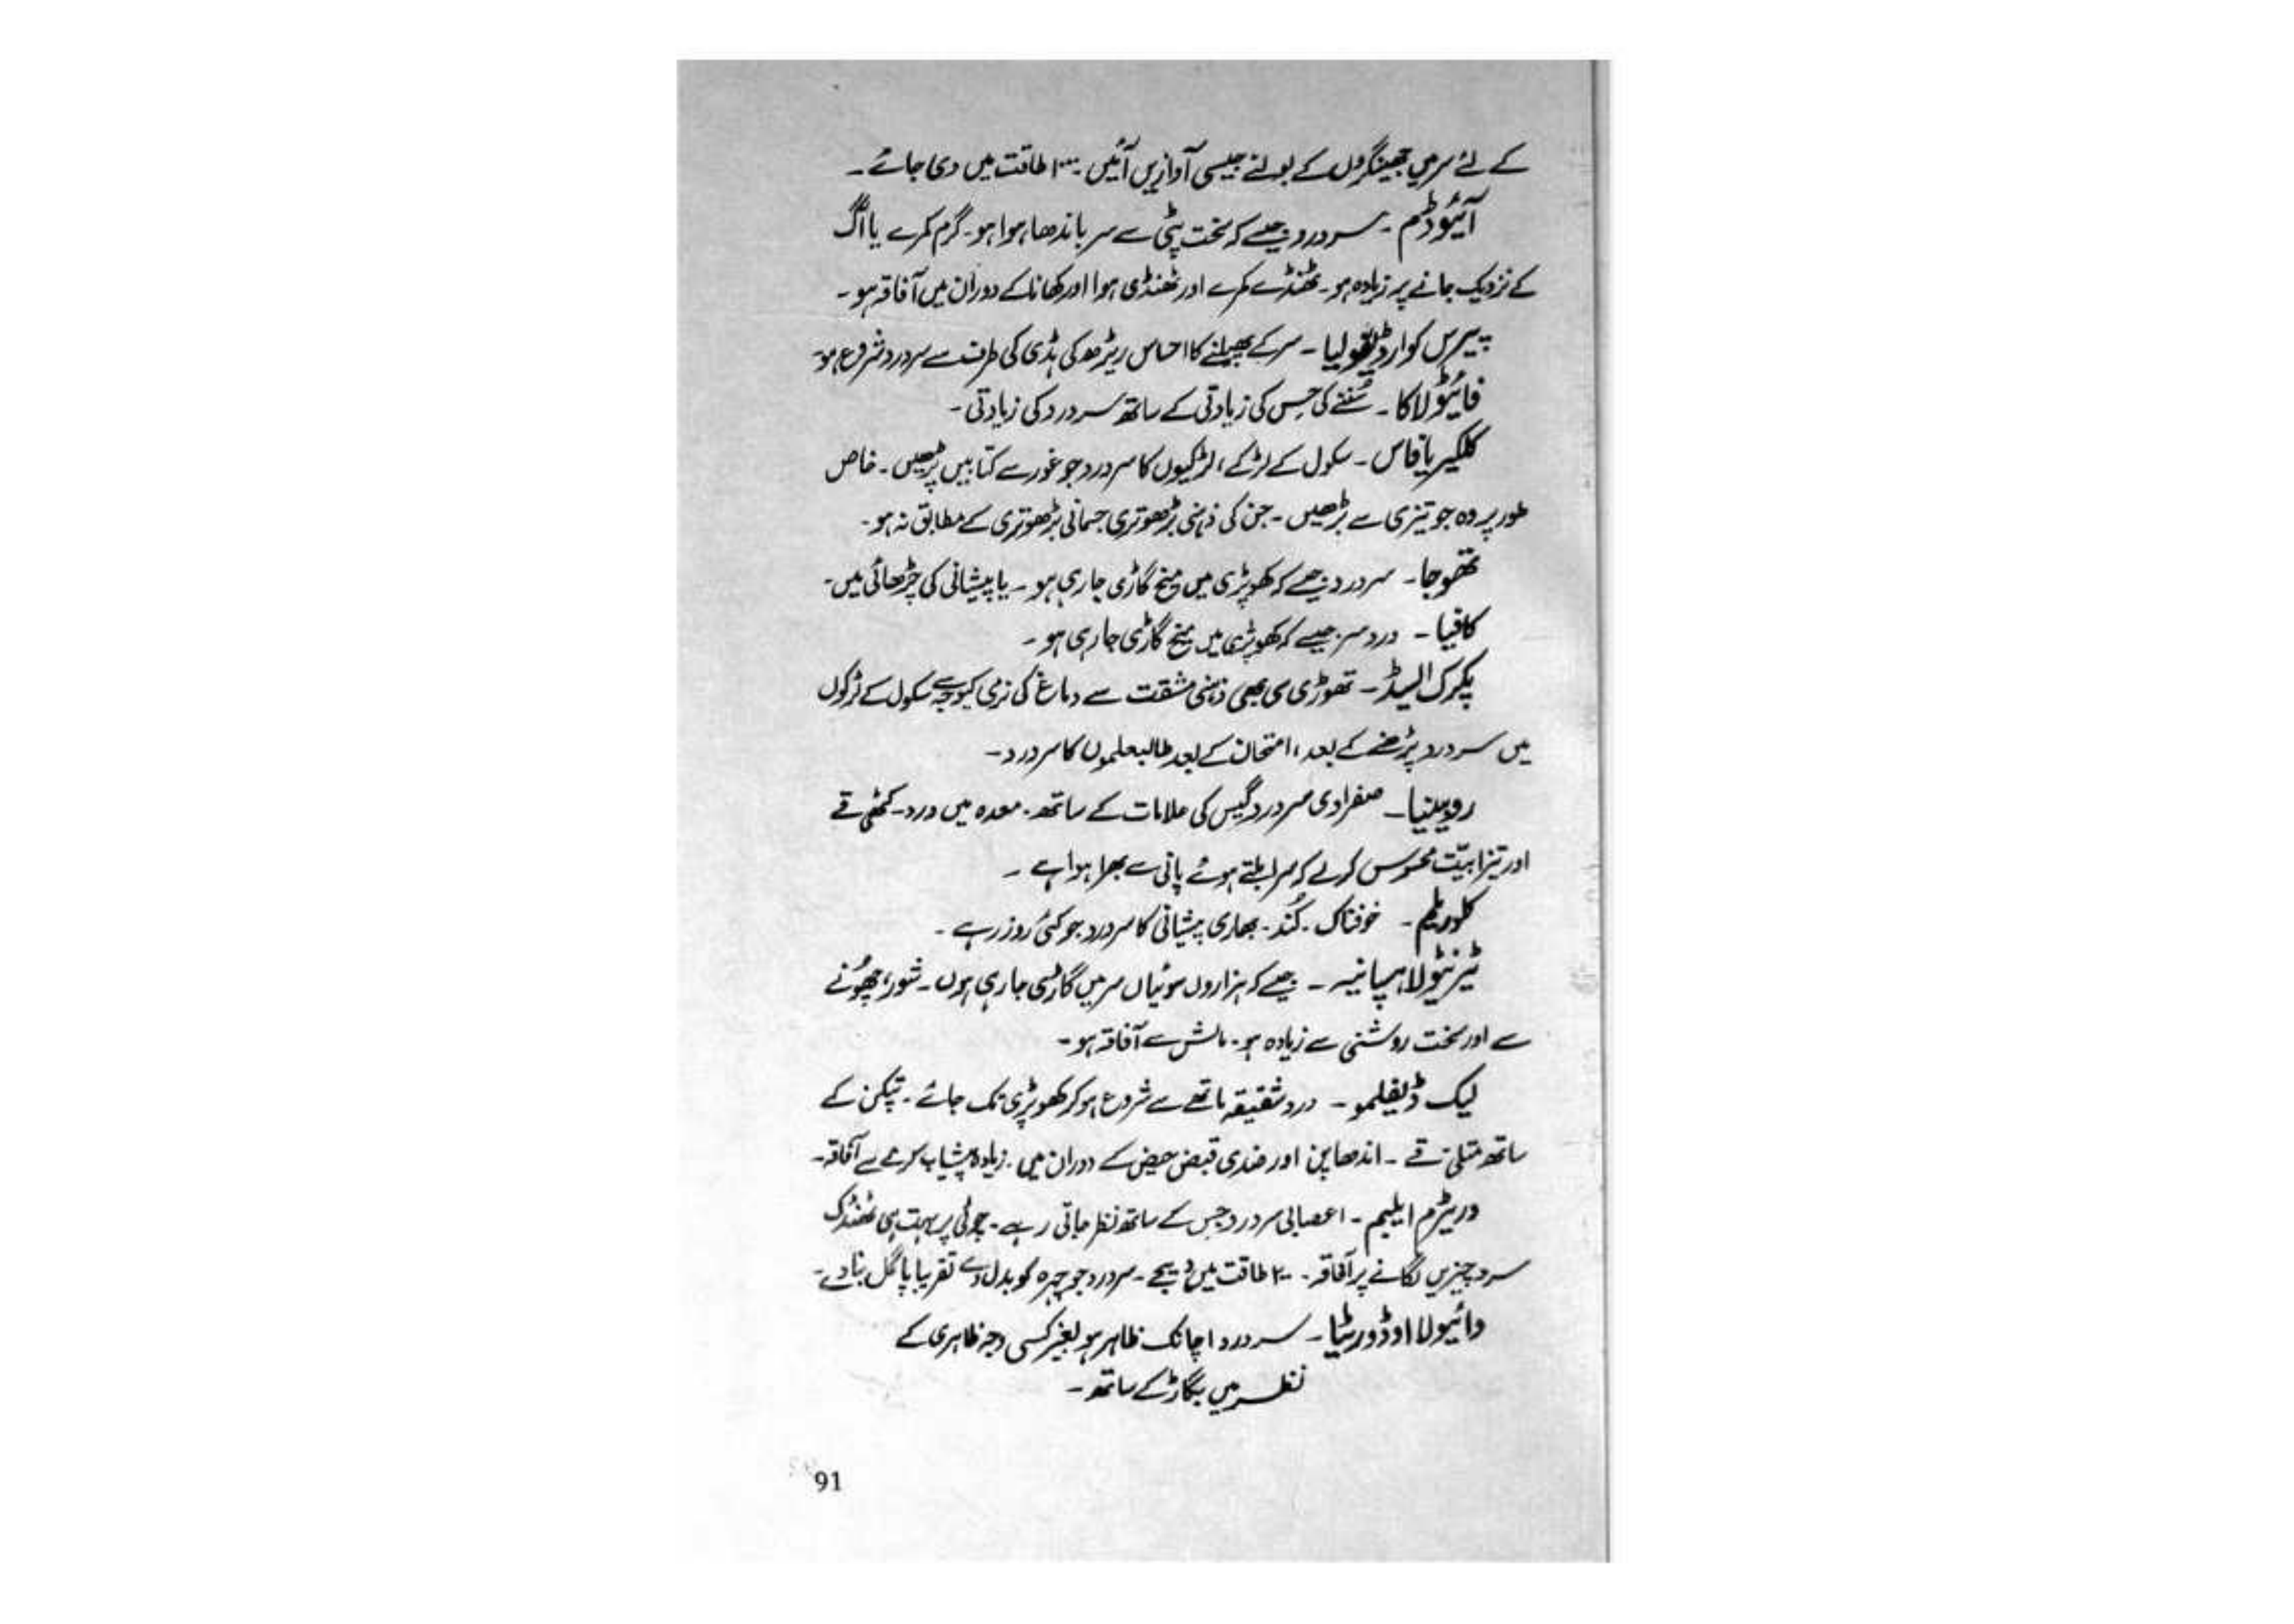 کے لئے سر میں جھینگروں کے بولنے جیسی آوازیں آئیں۔ ۱۰۰۰ طاقت میں دی جائے۔
آئیوڈم ۔ سر درد جیسے کہ سخت پٹی سے سر باندھا ہوا ہو۔ گرم کمرے یا آگ
کے نزدیک جانے پر زیادہ ہو۔ ٹھنڈے کمرے اور ٹھنڈی ہوا اور کھانا کے دوران میں آفاقہ ہو۔
پیرس کواردیفولیا ۔ سر کے پھیلنے کا احساس ریڑھ کی ہڈی کی طرف سے سر درد شروع ہو۔
فائیٹولاکا ۔ سُننے کی حِس کی زیادتی کے ساتھ سر درد کی زیادتی۔
کلکیریا فاس ۔ سکول کے لڑکے، لڑکیوں کا سر درد جو غور سے کتابیں پڑھیں۔ خاص
طور پر وہ جو تیزی سے بڑھیں۔ جن کی ذہنی بڑھوتری جسمانی بڑھوتری کے مطابق نہ ہو۔
تھوجا ۔ سر درد جیسے کہ کھوپڑی میں میخ گاڑی جا رہی ہو۔ یا پیشانی کی چڑھائی میں۔
کافیا ۔ درد سر جیسے کہ کھوپڑی میں میخ گاڑی جا رہی ہو۔
پکرک ایسڈ ۔ تھوڑی سی بھی ذہنی مشقت سے دماغ کی نرمی کیوجہ سے سکول کے لڑکوں
میں سر درد پڑھنے کے بعد، امتحان کے بعد طالبعلموں کا سر درد۔
روبینیا ۔ صفراوی سر درد گیس کی علامات کے ساتھ۔ معدہ میں درد۔ کھٹی قے
اور تیزابیّت محسوس کرے کہ سر ابلتے ہوئے پانی سے بھرا ہوا ہے۔
کلوریلم ۔ خوفناک۔ کُند۔ بھاری پیشانی کا سر درد جو کئی روز رہے۔
ٹیرنٹولا ہسپانیہ ۔ جیسے کہ ہزاروں سوئیاں سر میں گاڑی جا رہی ہوں۔ شور، چھُونے
سے اور سخت روشنی سے زیادہ ہو۔ مالش سے آفاقہ ہو۔
لیک ڈیفلیمو ۔ درد شقیقہ ماتھے سے شروع ہو کر کھوپڑی تک جائے۔ تپکن کے
ساتھ متلی قے ۔ اندھاپن اور ضدی قبض حیض کے دوران میں۔ زیادہ پیشاب کرنے سے آفاقہ۔
وریٹرم ایلبم ۔ اعصابی سر درد جس کے ساتھ نظر جاتی رہے۔ چوٹی پر بہت ہی ٹھنڈک
سرد چیزیں لگانے پر آفاقہ۔ ۲۰۰ طاقت میں دیجیے۔ سر درد جو چہرہ کو بدل دے تقریباً پاگل بنا دے۔
وائیولا اوڈوریٹا ۔ سر درد اچانک ظاہر ہو بغیر کسی وجہ ظاہری کے
نظر میں بگاڑ کے ساتھ۔
91